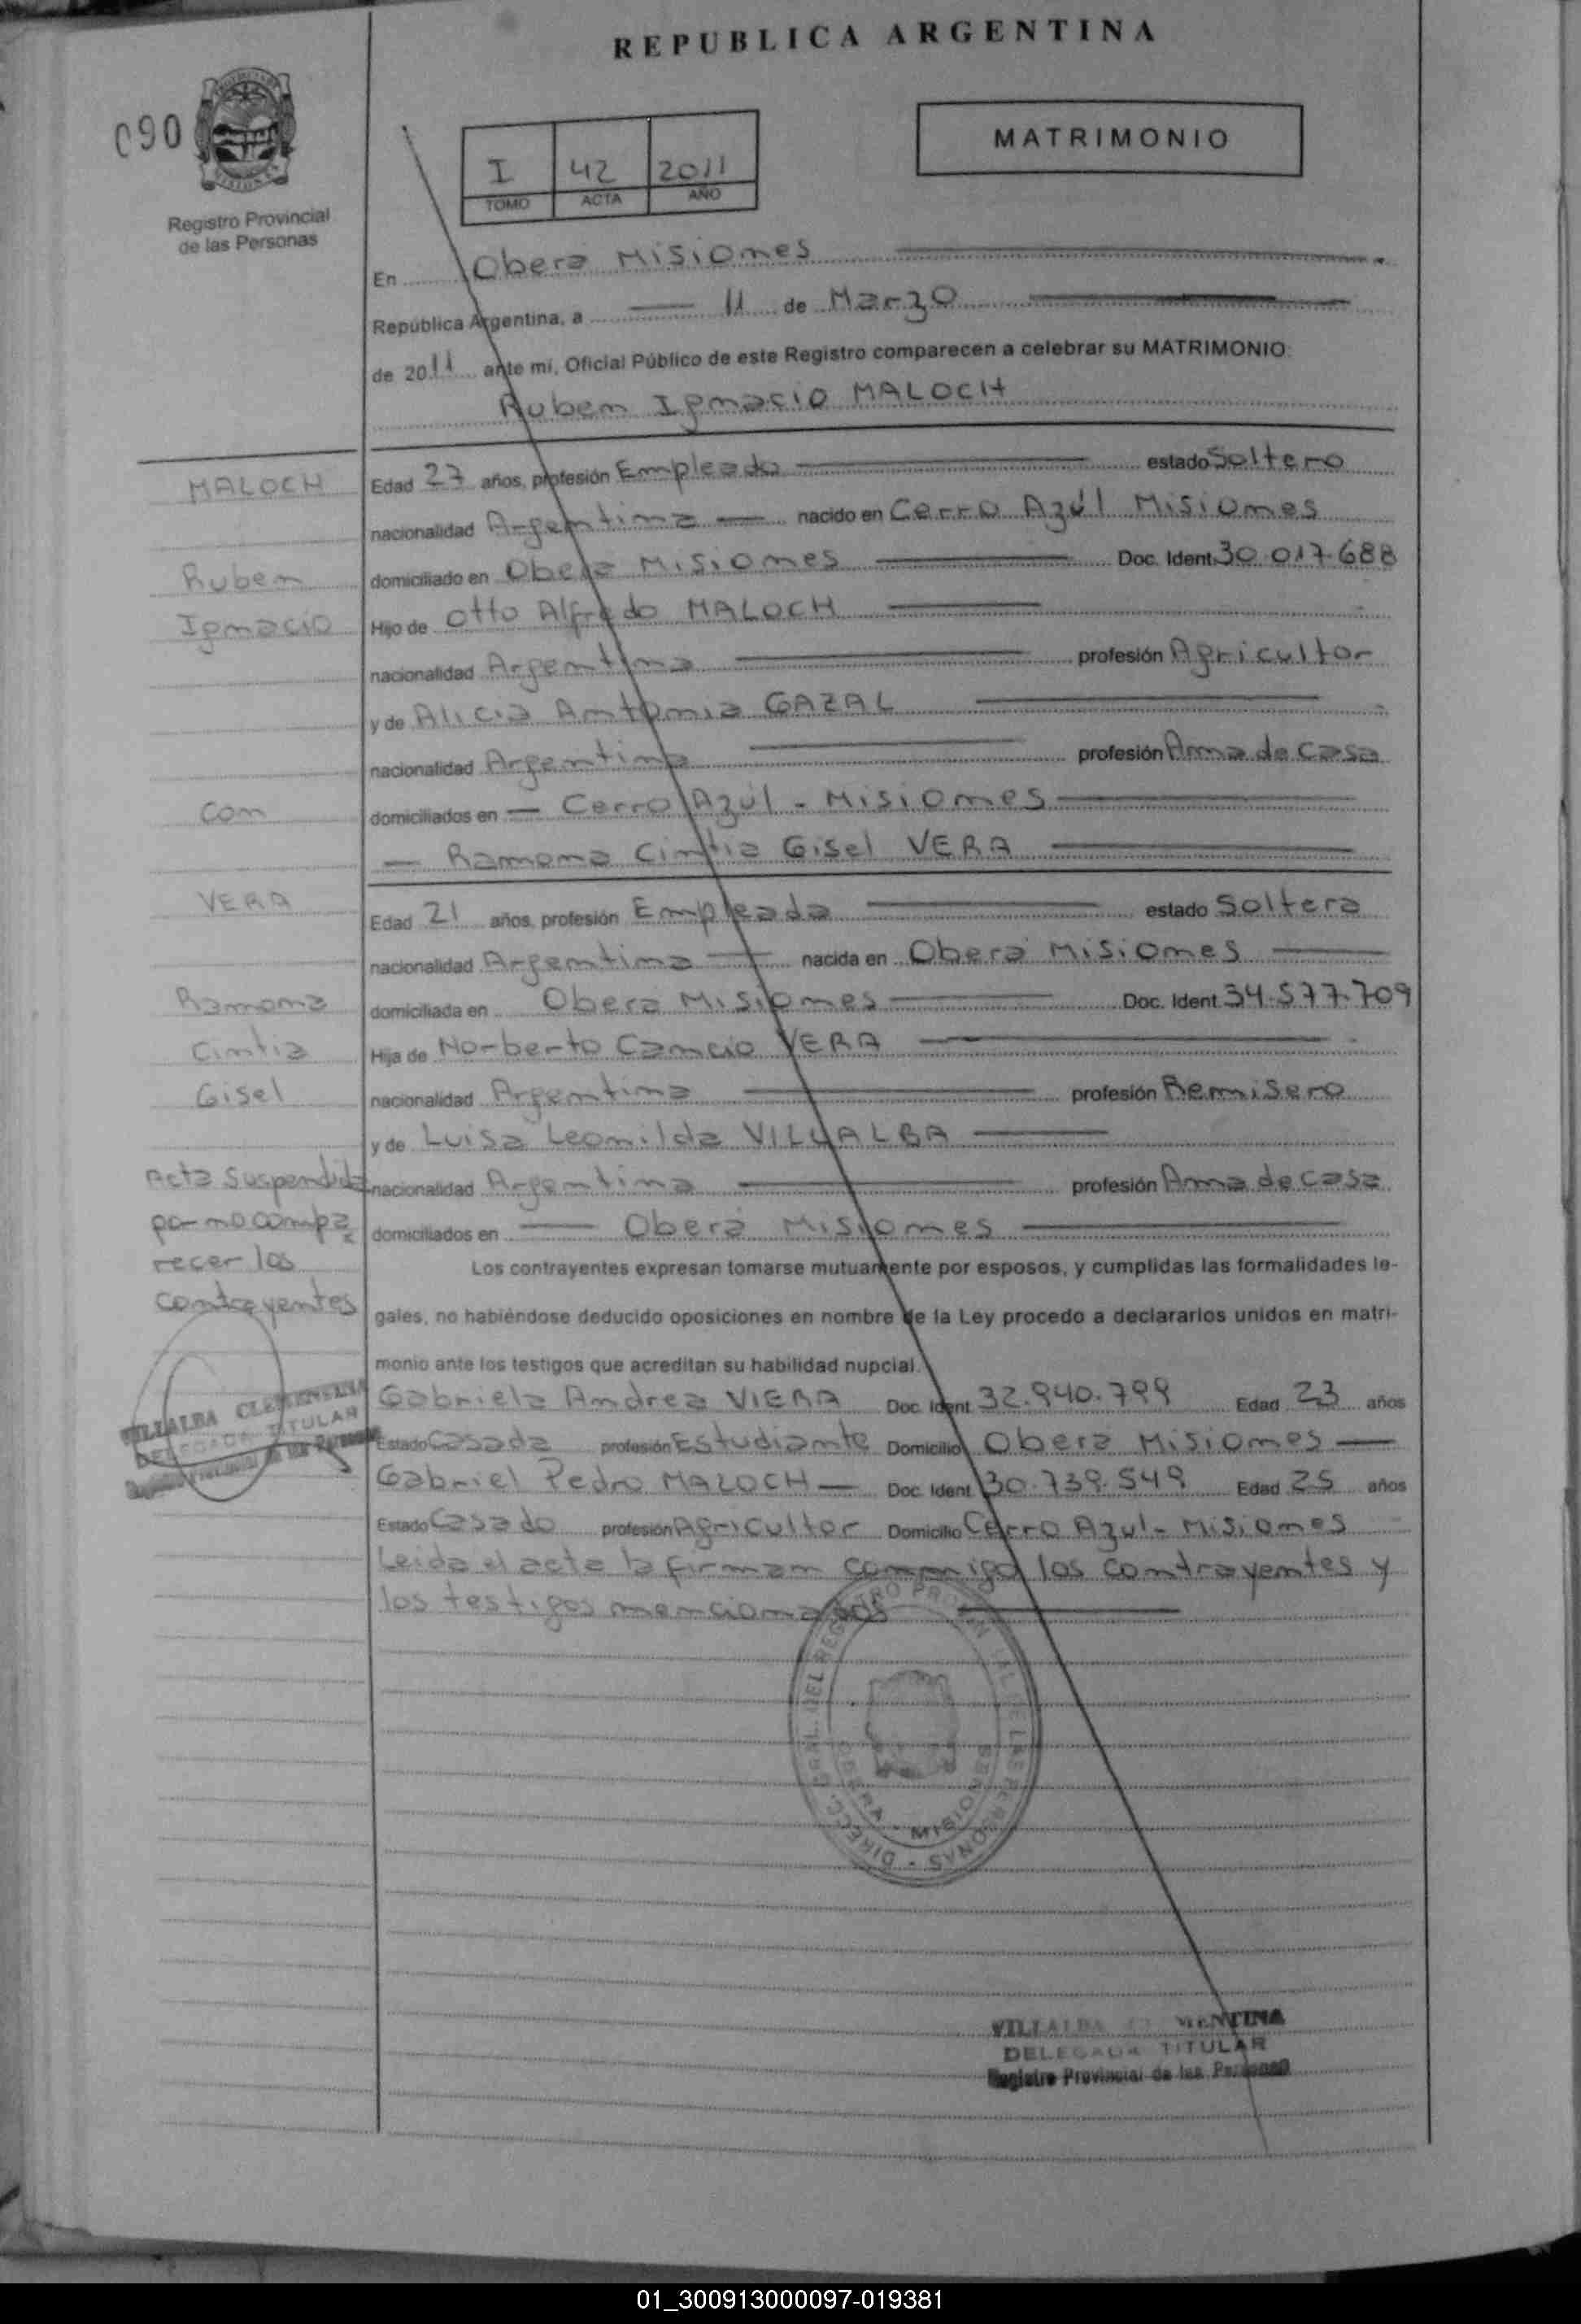 REPUBLICA ARGENTINA
090
MATRIMONIO
I 42 2011
TOMO ACTA AÑO
Registro Provincial
de las Personas
En Obera Misiones
República Argentina, a 11 de Marzo
de 2011 ante mi, Oficial Público de este Registro comparecen a celebrar su MATRIMONIO:
Ruben Ignacio MALOCH
MALOCH
Edad 27 años, profesión Empleado estado Soltero
nacionalidad Argentina nacido en Cerro Azúl Misiones
Ruben
domiciliado en Obera Misiones Doc. Ident. 30.017.688
Ignacio
Hijo de Otto Alfredo MALOCH
nacionalidad Argentina profesión Agricultor
y de Alicia Antonia GAZAL
nacionalidad Argentina profesión Ama de casa
con
domiciliados en Cerro Azúl - Misiones
Ramona Cintia Gisel VERA
VERA
Edad 21 años, profesión Empleada estado Soltera
nacionalidad Argentina nacida en Oberá Misiones
Ramona
domiciliada en Obera Misiones Doc. Ident. 34.577.709
Cintia
Hija de Norberto Cancio VERA
Gisel
nacionalidad Argentina profesión Remisero
y de Luisa Leonilda VILLALBA
Acta Suspendida
nacionalidad Argentina profesión Ama de casa
por no compa
domiciliados en Oberá Misiones
recer los
Los contrayentes expresan tomarse mutuamente por esposos, y cumplidas las formalidades le-
contrayentes
gales, no habiéndose deducido oposiciones en nombre de la Ley procedo a declararlos unidos en matri-
monio ante los testigos que acreditan su habilidad nupcial.
Gabriela Andrea VIERA Doc. Ident. 32.940.799 Edad 23 años
VILLALBA CLEMENTINA
DELEGADA TITULAR
Registro Provincial de las Personas
Estado Casada profesión Estudiante Domicilio Obera Misiones
Gabriel Pedro MALOCH Doc. Ident. 30.739.549 Edad 25 años
Estado Casado profesión Agricultor Domicilio Cerro Azul - Misiones
Leida el acta la firman conmigo los contrayentes y
los testigos mencionados
DIRECC. GRAL. DEL REGISTRO PROVINCIAL DE LAS PERSONAS
OBERA - MISIONES
VILLALBA CLEMENTINA
DELEGADA TITULAR
Registro Provincial de las Personas
01_300913000097-019381